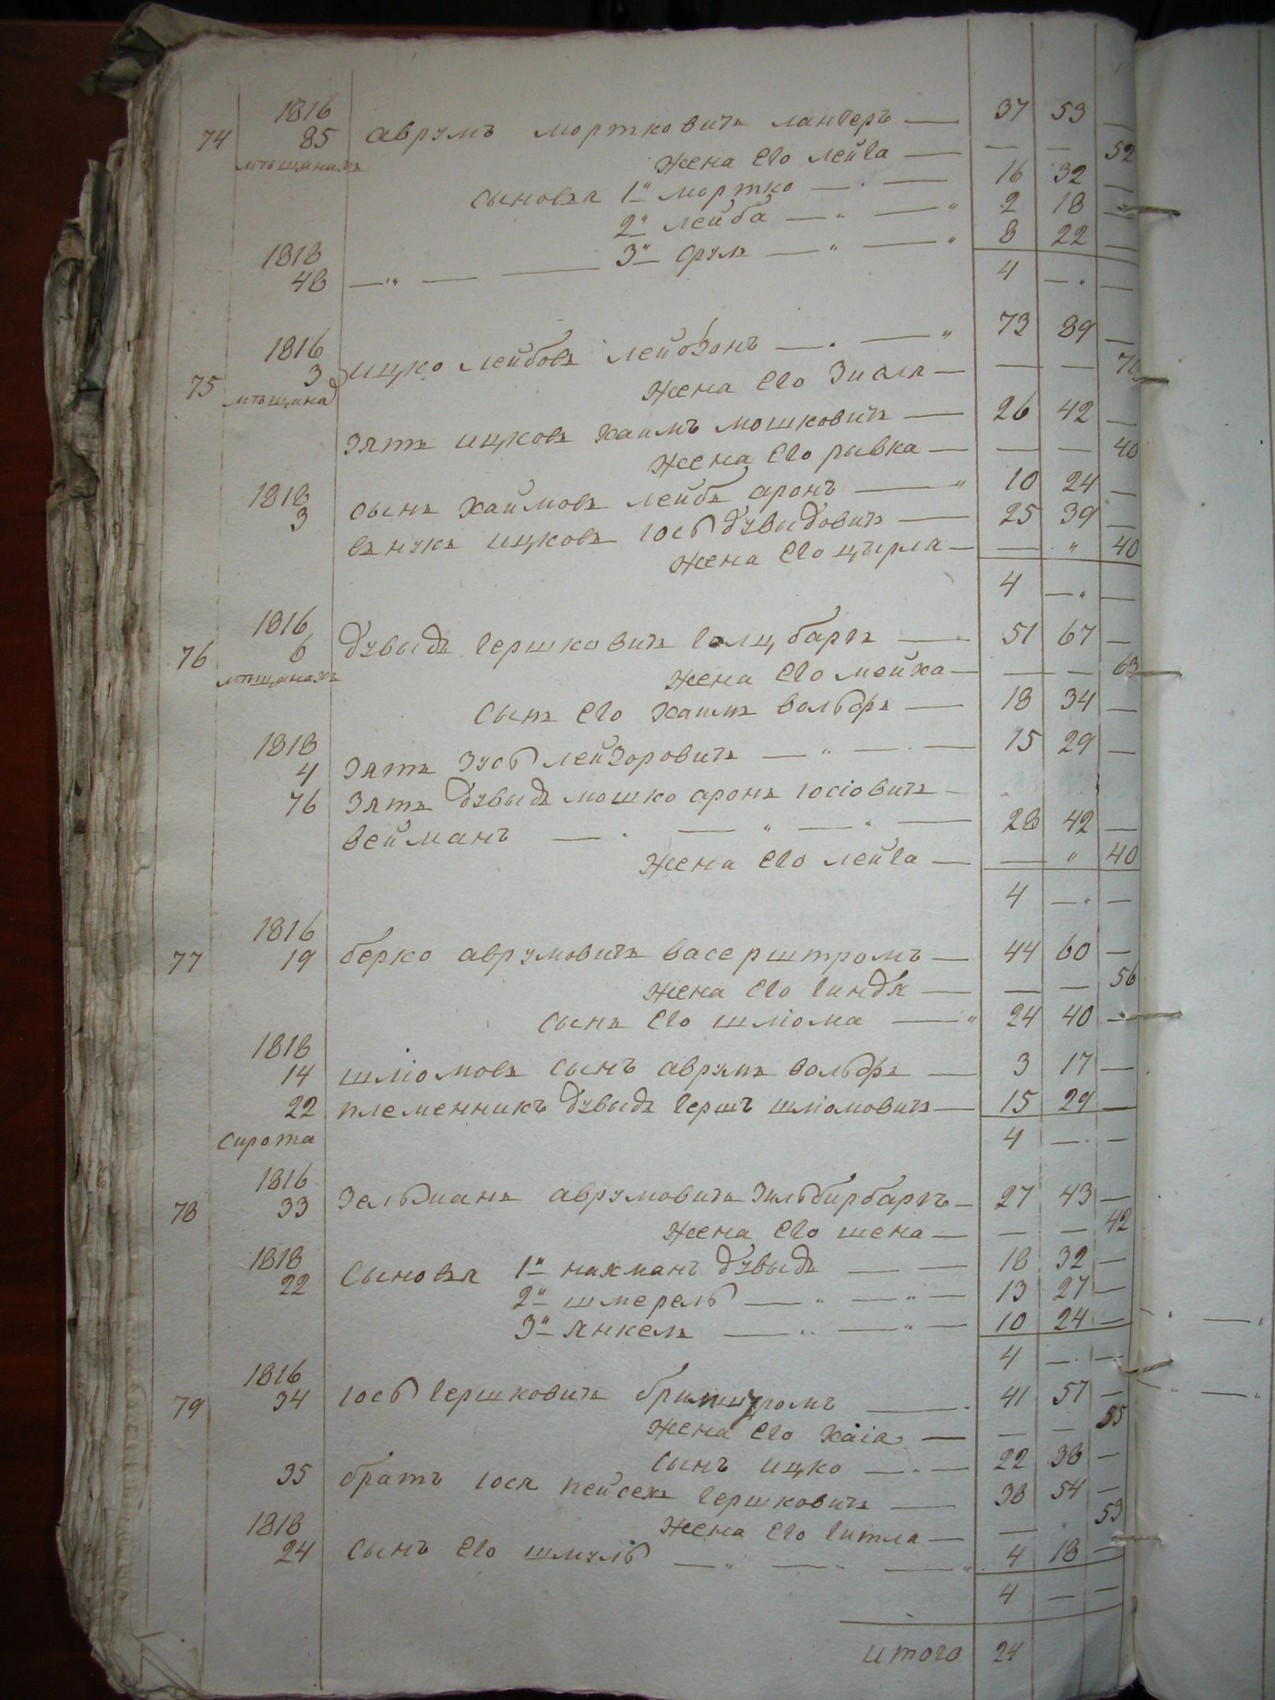 1816
74 85 аврумъ мортковичъ лангеръ — 37 53 —
мѣщанахъ жена его лейга — — — 52
сыновья 1й мортко — 16 32 —
2й лейба — 2 18 —
1818 3й сруль — 8 22 —
48 — 4 — —
1816
75 3 ицко лейбовъ лейбзонъ — 73 89 —
мѣщана жена его Зисля — — —
Зять ицковъ хаимъ мошковичъ — 26 42 —
жена его рывка — — — 40
1818
3 сынъ хаимовъ лейбъ аронъ — 10 24 —
внукъ ицковъ іось дувыдовичъ — 25 39 —
жена его цырла — — 40
4 — —
1816
76 6 дувыдъ гершковичъ голцбаргъ — 51 67 —
мѣщанахъ жена его мейха — — — 63
сынъ его хаимъ вольфъ — 18 34 —
1818
4 Зять Зусь лейзоровичъ — 15 29 —
76 Зять дувыдъ мошко аронъ іосіовичъ —
вейманъ — 28 42 —
жена его лейга — — 40
4 — —
1816
77 19 берко аврумовичъ васерштромъ — 44 60 —
жена его гиндя — — — 56
сынъ его шліома — 24 40 —
1818
14 шліомовъ сынъ аврумъ вольфъ — 3 17 —
22 племенникъ дувыдъ гершъ шліомовичъ — 15 29 —
сирота 4 — —
1816
78 33 Зельманъ аврумовичъ Зильбирбаргъ — 27 43 —
жена его шена — — — 42
1818
22 сыновья 1й нахманъ дувыдъ — 18 32 —
2й шмерель — 13 27 —
3й янкель — 10 24 —
4 — —
1816
79 34 іось гершковичъ — 41 57 —
жена его хаія — — — 55
сынъ ицко — 22 38 —
35 братъ іося пейсехъ гершковичъ — 38 54 —
жена его гитля — — 53
1818
24 сынъ его шмуль — 4 18 —
4 — —
итого 24